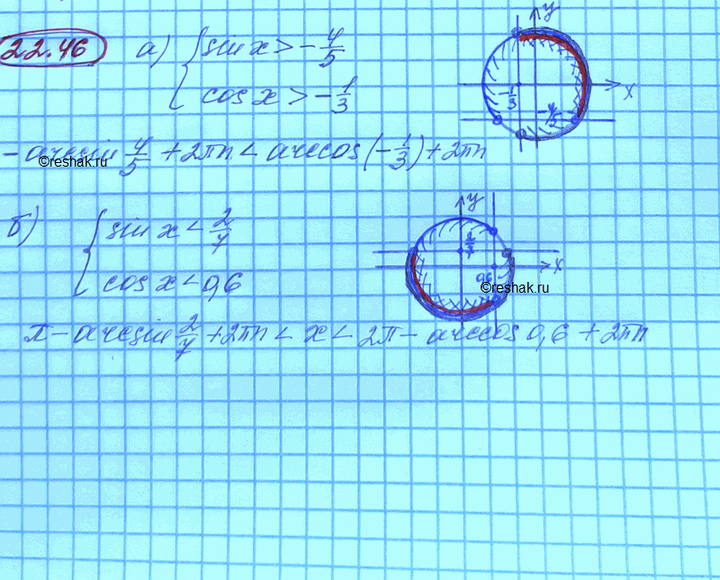 22.46 а) { sin x > -4/5
cos x > -1/3
y
x
-1/3
-4/5
-arcsin 4/5 + 2πn < arccos(-1/3) + 2πn
©reshak.ru
б) { sin x < 2/7
cos x < 0,6
y
2/7
x
0,6
©reshak.ru
π - arcsin 2/7 + 2πn < x < 2π - arccos 0,6 + 2πn